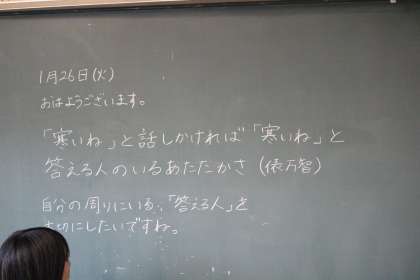 1月26日(火)
おはようございます。
「寒いね」と話しかければ「寒いね」と
答える人のいるあたたかさ (俵万智)
自分の周りにいる、「答える人」を
大切にしたいですね。